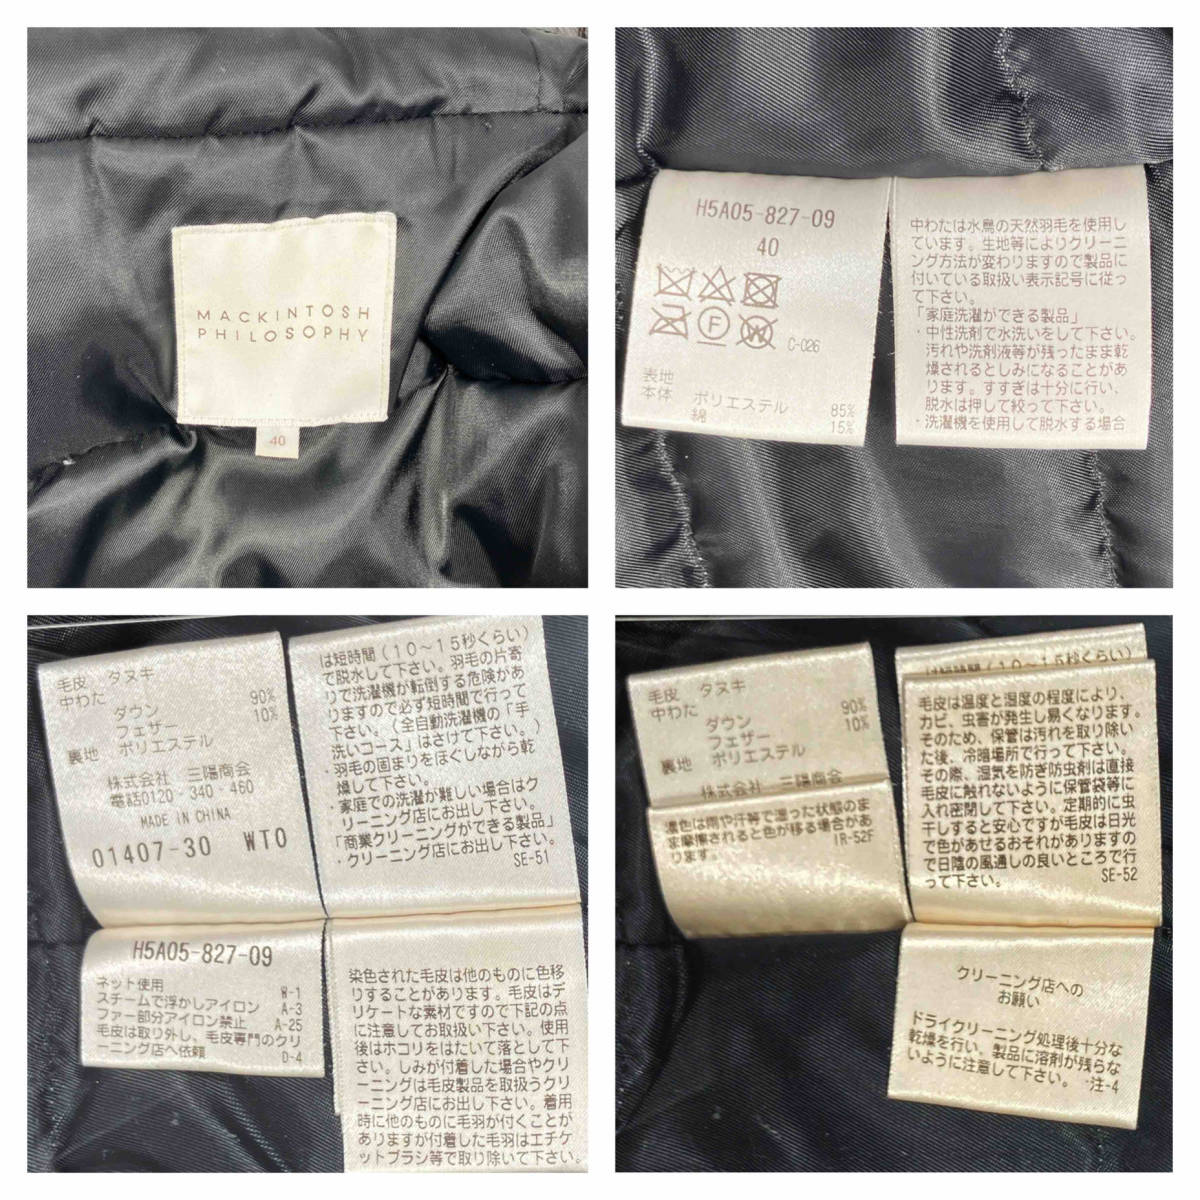 MACKINTOSH
PHILOSOPHY
40
H5A05-827-09
40
F
W
C-026
表地
本体 ポリエステル 85%
綿 15%
中わたは水鳥の天然羽毛を使用し
ています。生地等によりクリーニ
ング方法が変わりますので製品に
付いている取扱い表示記号に従っ
て下さい。
「家庭洗濯ができる製品」
・中性洗剤で水洗いをして下さい。
汚れや洗剤液等が残ったまま乾
燥されるとしみになることがあ
ります。すすぎは十分に行い、
脱水は押して絞って下さい。
・洗濯機を使用して脱水する場合
毛皮 タヌキ
中わた
ダウン 90%
フェザー 10%
裏地 ポリエステル
株式会社 三陽商会
電話0120-340-460
MADE IN CHINA
01407-30 WTO
は短時間(10～15秒くらい)
で脱水して下さい。羽毛の片寄
りで洗濯機が転倒する危険があ
りますので必ず短時間で行って
下さい。(全自動洗濯機の「手
洗いコース」はさけて下さい。)
・羽毛の固まりをほぐしながら乾
燥して下さい。
・家庭での洗濯が難しい場合はク
リーニング店にお出し下さい。
「商業クリーニングができる製品」
・クリーニング店にお出し下さい。
SE-51
H5A05-827-09
ネット使用 W-1
スチームで浮かしアイロン A-3
ファー部分アイロン禁止 A-25
毛皮は取り外し、毛皮専門のクリ
ーニング店へ依頼 D-4
染色された毛皮は他のものに色移
りすることがあります。毛皮はデ
リケートな素材ですので下記の点
に注意してお取扱い下さい。使用
後はホコリをはたいて落として下
さい。しみが付着した場合やクリ
ーニングは毛皮製品を取扱うクリ
ーニング店にお出し下さい。着用
時に他のものに毛羽が付くことが
ありますが付着した毛羽はエチケ
ットブラシ等で取り除いて下さい。
毛皮 タヌキ
中わた
ダウン 90%
フェザー 10%
裏地 ポリエステル
株式会社 三陽商会
濃色は雨や汗等で湿った状態のま
ま摩擦されると色が移る場合があ
ります。 IR-52F
は短時間(10～15秒くらい)
毛皮は温度と湿度の程度により、
カビ、虫害が発生し易くなります。
そのため、保管は汚れを取り除い
た後、冷暗場所で行って下さい。
その際、湿気を防ぎ防虫剤は直接
毛皮に触れないように保管袋等に
入れ密閉して下さい。定期的に虫
干しすると安心ですが毛皮は日光
で色があせるおそれがありますの
で日陰の風通しの良いところで行
って下さい。 SE-52
クリーニング店への
お願い
ドライクリーニング処理後十分な
乾燥を行い、製品に溶剤が残らな
いように注意して下さい。 -注-4